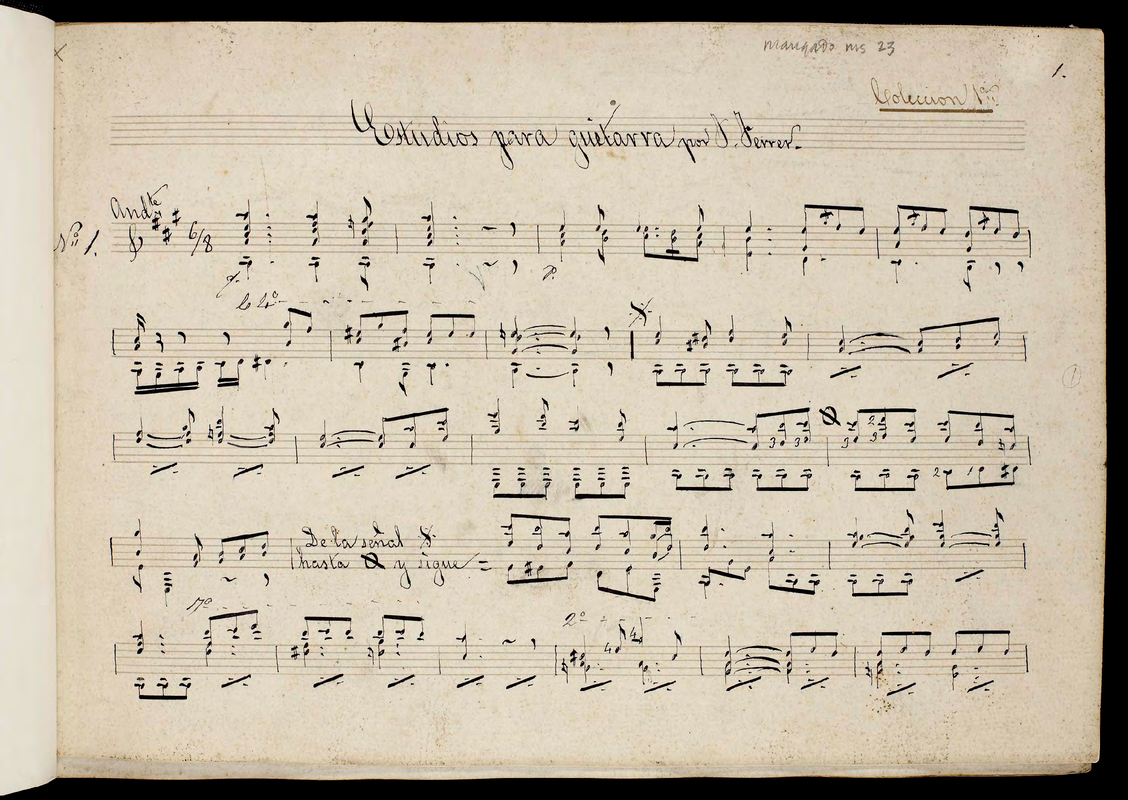 mangado ms 23
1.
Coleccion 1ª
Estudios para guitarra por J. Ferrer.
Andte
Nº 1. 6/8
f. p.
C 4ª
3 3 3 2 3
2 1
De la señal
hasta y sigue =
7ª
2ª 4 4
1